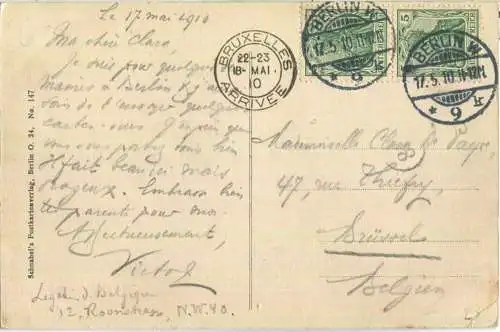 Le 17 mai 1910
Ma chère Clara,
Je suis pour quelques
à Berlin
de t'envoyer quelques
cartes vues. J'espère que
vous portez tous bien
Il fait beau ici mais
orageux. Embrasse bien
tes parents pour moi.
Affectueusement,
Victor
Légat. d. Belgique
12, Roonstrasse, N.W.40.
Schnabel's Postkartenverlag, Berlin O. 34. No. 147
BRUXELLES
22-23
18-MAI
10
ARRIVEE
BERLIN W
17.5.10.11-12N
* 9 k
5
BERLIN W
17.5.10.11-12N
* 9 k
Mademoiselle Clara de
47, rue
Brüssel
Belgien